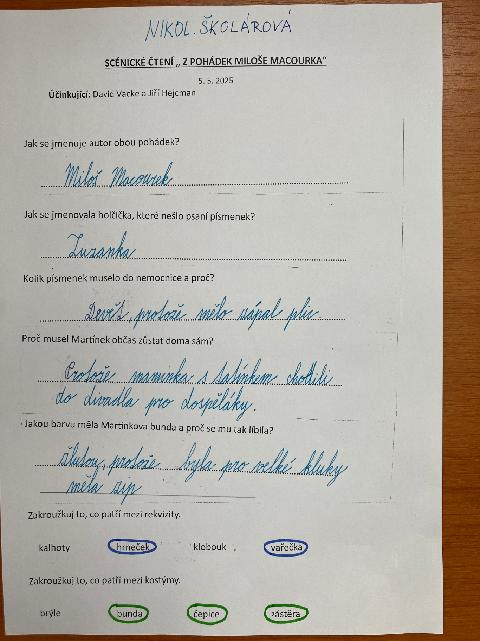 NIKOL ŠKOLÁROVÁ
SCÉNICKÉ ČTENÍ „ Z POHÁDEK MILOŠE MACOURKA"
5. 5. 2025
Účinkující: David Vacke a Jiří Hejcman
Jak se jmenuje autor obou pohádek?
Miloš Macourek
Jak se jmenovala holčička, které nešlo psaní písmenek?
Zuzanka
Kolik písmenek muselo do nemocnice a proč?
Devět, protože mělo zápal plic
Proč musel Martínek občas zůstat doma sám?
Protože maminka s tatínkem chodili
do divadla pro dospěláky.
Jakou barvu měla Martínkova bunda a proč se mu tak líbila?
žlutou, protože byla pro velké kluky
měla zip
Zakroužkuj to, co patří mezi rekvizity.
kalhoty hrneček klobouk vařečka
Zakroužkuj to, co patří mezi kostýmy.
brýle bunda čepice zástěra